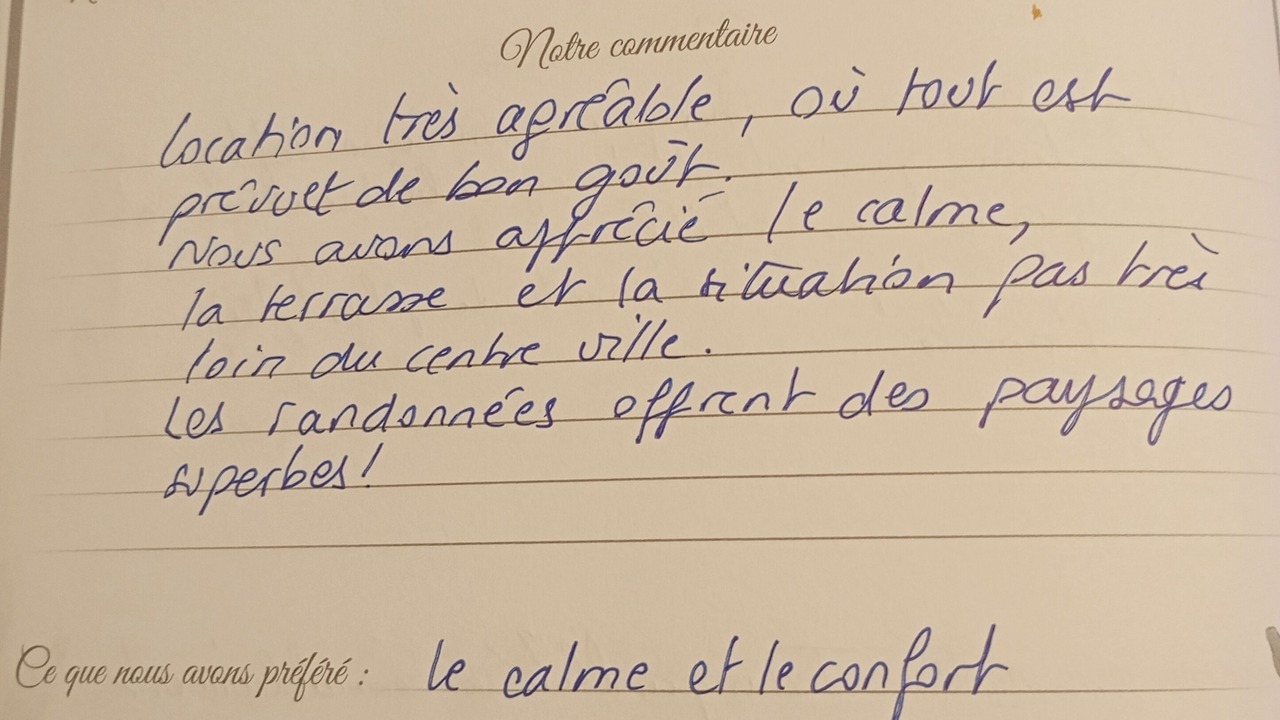 Notre commentaire
Location très agréable, où tout est
prévuet de bon goût.
Nous avons apprécié le calme,
la terrasse et la situation pas très
loin du centre ville.
Les randonnées offrent des paysages
superbes!
Ce que nous avons préféré : le calme et le confort